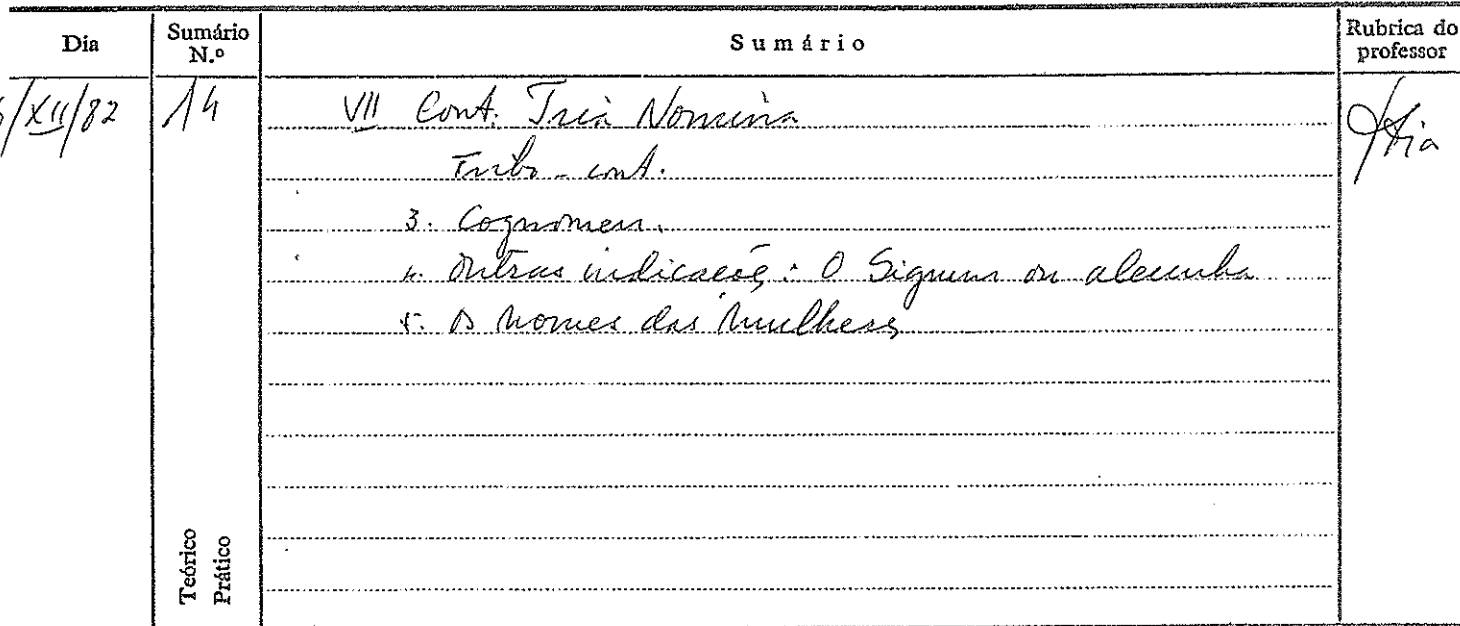 Dia
Sumário N.º
Sumário
Rubrica do professor
/XII/82
14
VII Cont. Tria Nomina
Tribo - cont.
3. Cognomen.
4. Outras indicações: O Signum ou alcunha
5. Os nomes das mulheres
Teórico
Prático